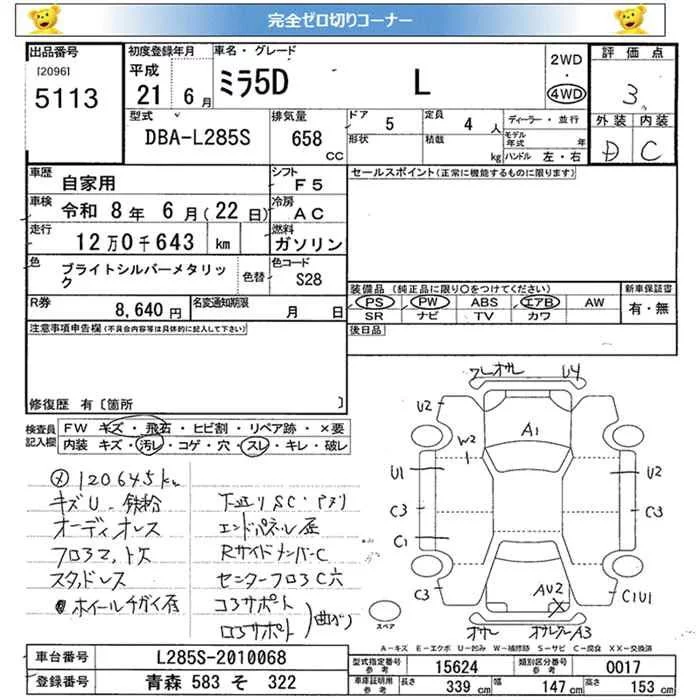 完全ゼロ切りコーナー
出品番号
[2096]
5113
初度登録年月
平成
21 6月
車名・グレード
ミラ5D L
2WD
・
4WD
評価点
3
外装 内装
D C
型式
DBA-L285S
排気量
658
CC
ドア
5
定員
4
人
形状
積載
kg
ディーラー・並行
モデル年式
年
ハンドル 左・右
車歴
自家用
シフト
F5
車検
令和 8年 6月(22日)
冷房
AC
走行
12万0千643 km
燃料
ガソリン
色
ブライトシルバーメタリック
色替
色コード
S28
R券
8,640円
名変通知期限
月 日
セールスポイント(正常に機能するものに限ります)
装備品 (純正品に限り○をつけてください)
PS PW ABS エアB AW
SR ナビ TV カワ
新車保証書
有・無
後日品
注意事項申告欄(不具合内容等は具体的に記入して下さい)
修復歴 有〔箇所 〕
検査員
記入欄
FW キズ・飛石・ヒビ割・リペア跡・×要
内装 キズ・汚レ・コゲ・穴・スレ・キレ・破レ
120645km
キズU・鉄粉
オーディオレス
フロアマットス
スタッドレス
ホイールチガイ
下廻りSC・
エンドパネル
RサイドメンバーC
センターフロアC穴
コアサポート
ロアサポート
曲がり
U4
U2
A1
W2
U1
U2
C3
C3
C1
C3
AU2
X
C1U1
A3
スペア
A-キズ E-エクボ U-凹み W-補修跡 S-サビ C-腐食 XX-交換済
車台番号
L285S-2010068
登録番号
青森 583 そ 322
型式指定番号
参考
15624
類別区分番号
参考
0017
車庫証明用
参考
長さ
339 cm
幅
147 cm
高さ
153 cm